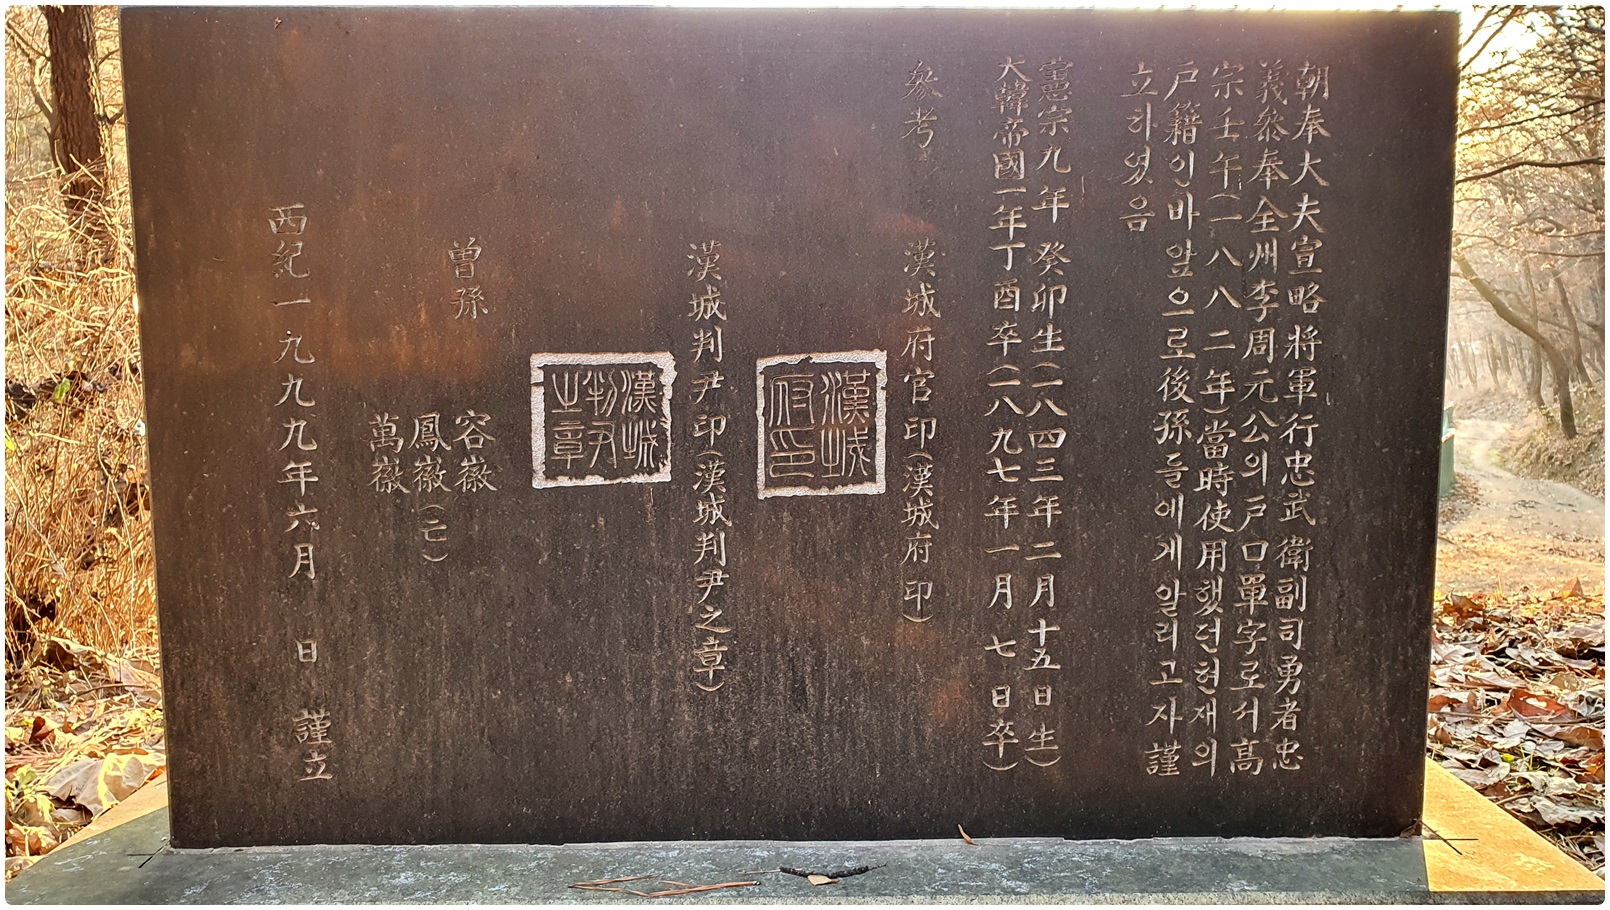 朝奉大夫宣略將軍行忠武衛副司勇者忠
義參奉全州李周元公의戶口單字로서高
宗壬午(一八八二年)當時使用했던현재의
戶籍인바앞으로後孫들에게알리고자謹
立하였음
憲宗九年 癸卯生(一八四三年二月十五日生)
大韓帝國一年丁酉卒(一八九七年一月七日卒)
參考
漢城府官印(漢城府印)
漢城府印
漢城判尹印(漢城判尹之章)
漢城判尹之章
曾孫
容徽
鳳徽(亡)
萬徽
西紀一九九九年六月 日 謹立